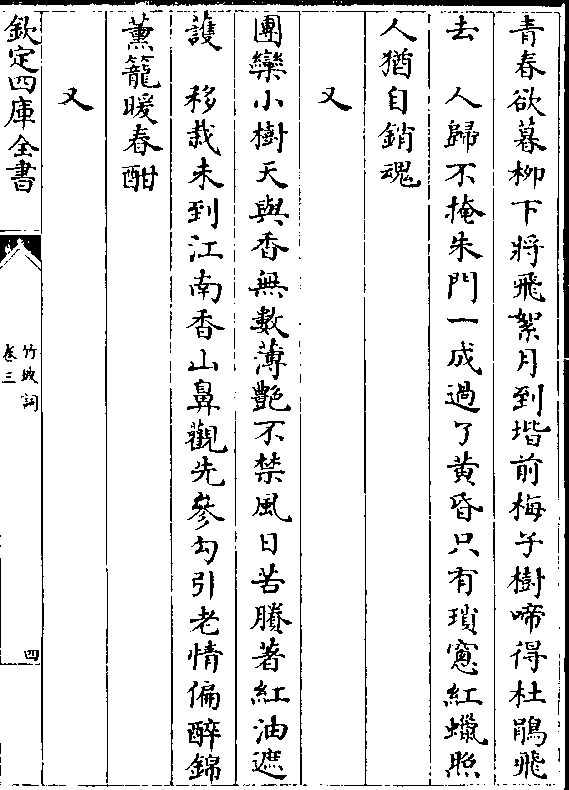 青春欲暮柳下將飛絮月到堦前梅子樹啼得杜鵑飛
去　人歸不掩朱門一成過了黄昏只有瑣窻紅蠟照
人猶自銷魂
又
團欒小樹天與香無數薄艶不禁風日苦賸著紅油遮
護　移栽未到江南香山鼻觀先參勾引老情偏醉錦
薰籠暖春酣
又
欽定四庫全書
竹坡詞
卷三
四